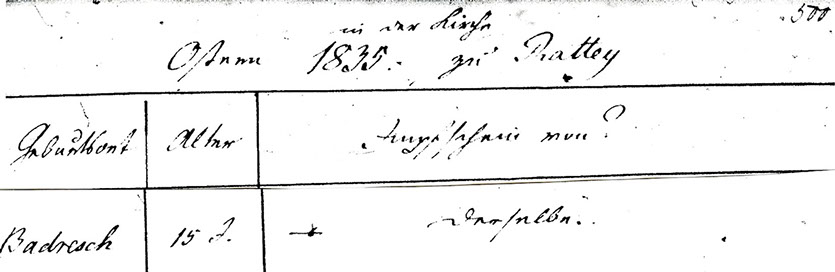 500.
in der Kirche
Ostern 1835. zu Rattey
Geburtsort Alter Impfschein von?
Badresch 15 J. Derselbe.